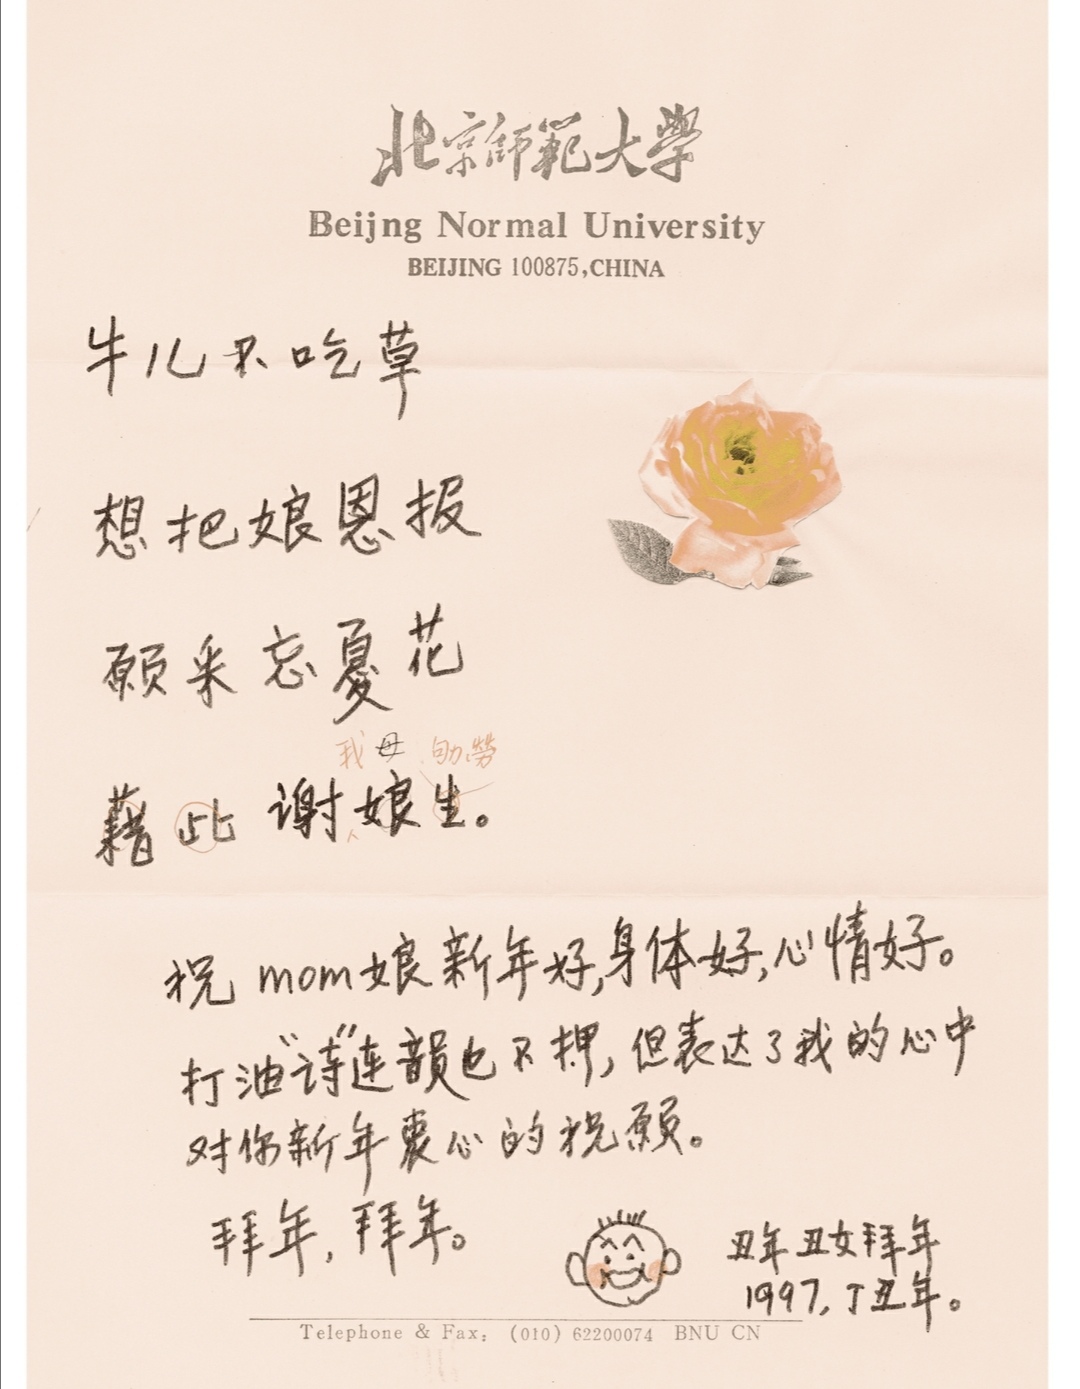 北京师範大學
Beijng Normal University
BEIJING 100875,CHINA
牛儿不吃草
想把娘恩报
愿采忘憂花
我母 劬劳
藉此谢娘生。
祝mom娘新年好,身体好,心情好。
打油"诗"连韻也不押,但表达了我的心中
对你新年衷心的祝愿。
拜年,拜年。
丑年丑女拜年
1997,丁丑年。
Telephone & Fax: (010) 62200074 BNU CN